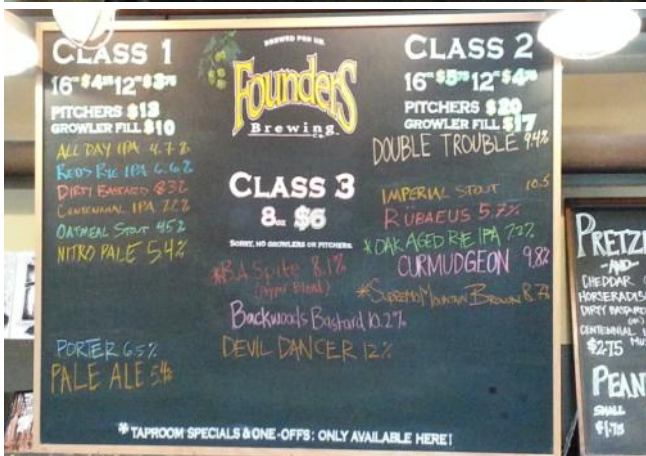 CLASS 1
16oz $4.25 12oz $3.75
PITCHERS $13
GROWLER FILL $10
ALL DAY IPA 4.7%
RED'S RYE IPA 6.6%
DIRTY BASTARD 8.3%
CENTENNIAL IPA 7.2%
OATMEAL STOUT 4.5%
NITRO PALE 5.4%
PORTER 6.5%
PALE ALE 5.4%
BREWED FOR US.
FOUNDERS
Brewing Co.
CLASS 3
8oz $6
SORRY, NO GROWLERS OR PITCHERS.
*B.A Spite 8.1%
(Pepper Blend)
Backwoods Bastard 10.2%
DEVIL DANCER 12%
CLASS 2
16oz $5.75 12oz $4.75
PITCHERS $20
GROWLER FILL $17
DOUBLE TROUBLE 9.4%
IMPERIAL STOUT 10.5
RÜBAEUS 5.7%
*OAK AGED RYE IPA 7.2%
CURMUDGEON 9.8%
*SUPREMO MOUNTAIN BROWN 8.7%
* TAPROOM SPECIALS & ONE-OFFS: ONLY AVAILABLE HERE!
PRETZ
-AND-
CHEDDAR
HORSERADIS
DIRTY BASTARD
(OR)
CENTENNIAL
$2.75 MUS
PEAN
SMALL
$1.75